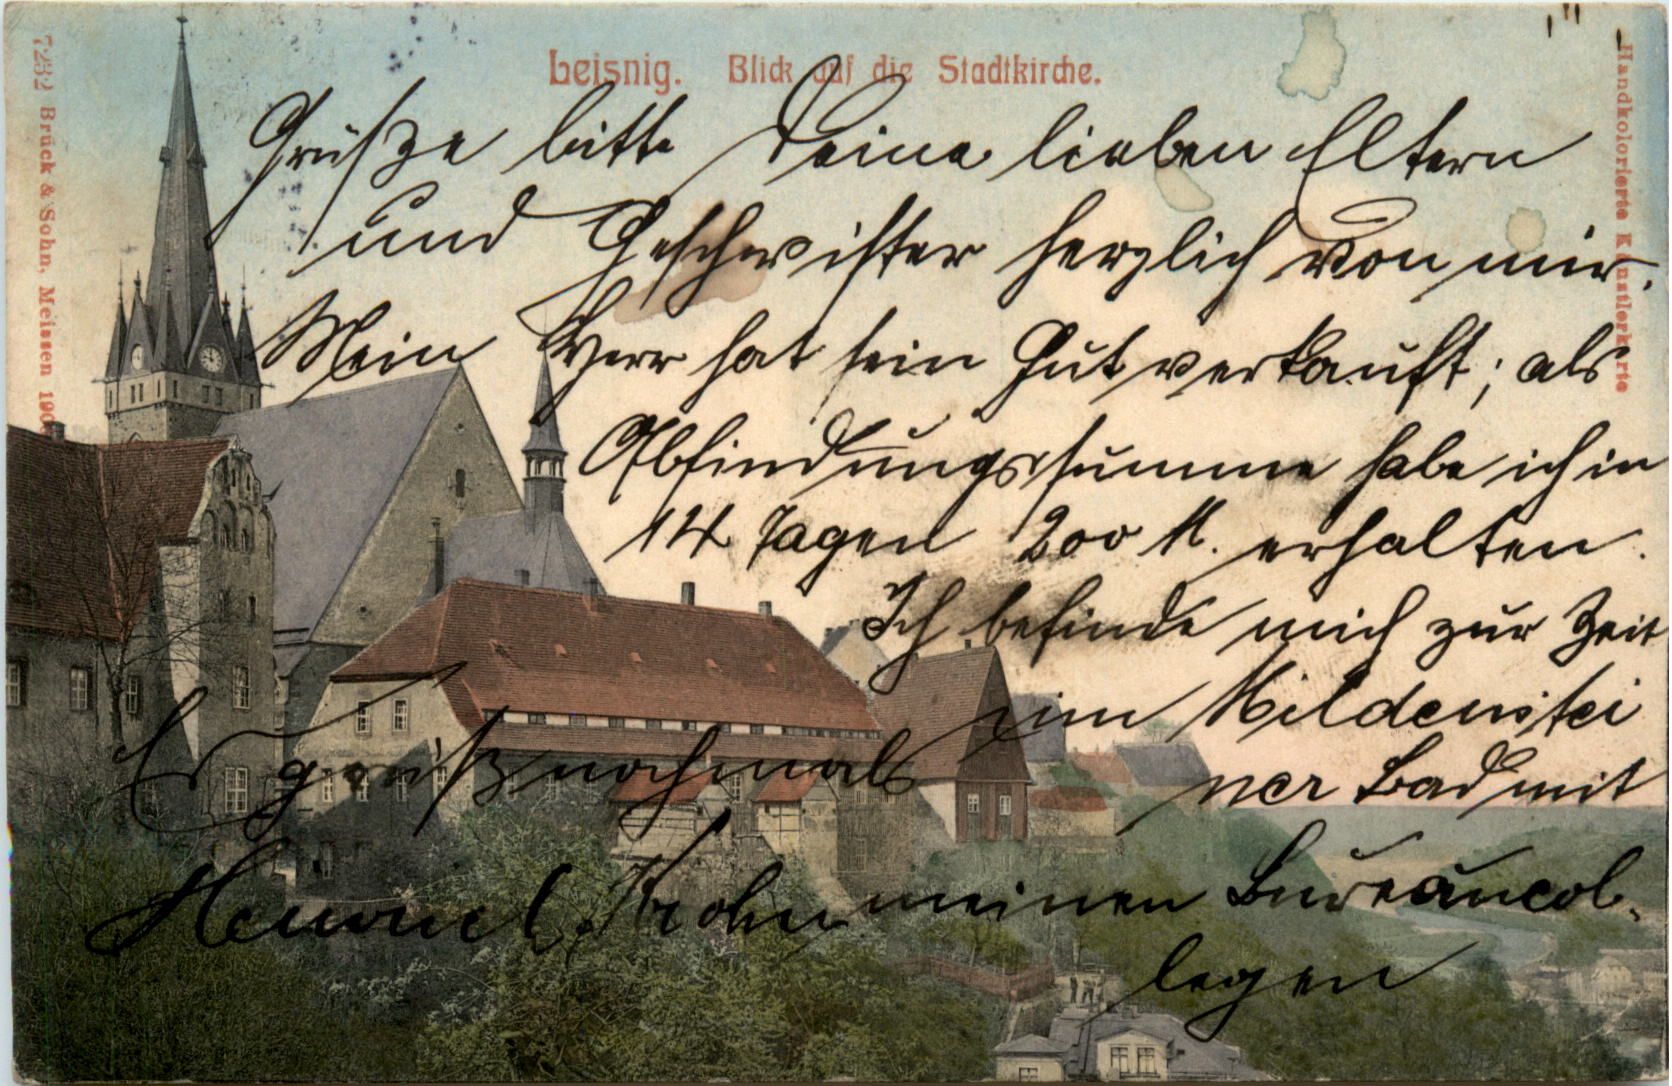 Leisnig. Blick auf die Stadtkirche.
7232 Brück & Sohn, Meissen 190
Handkolorierte Künstlerkarte
Grüße bitte Deine lieben Eltern
und Geschwister herzlich von mir.
Mein Herr hat sein Gut verkauft; als
Abfindungssumme habe ich in
14 Tagen 200 M. erhalten.
Ich befinde mich zur Zeit
im Mildenstei
ner Bad mit
meinen Bureaucol-
legen
Es grüßt nochmals